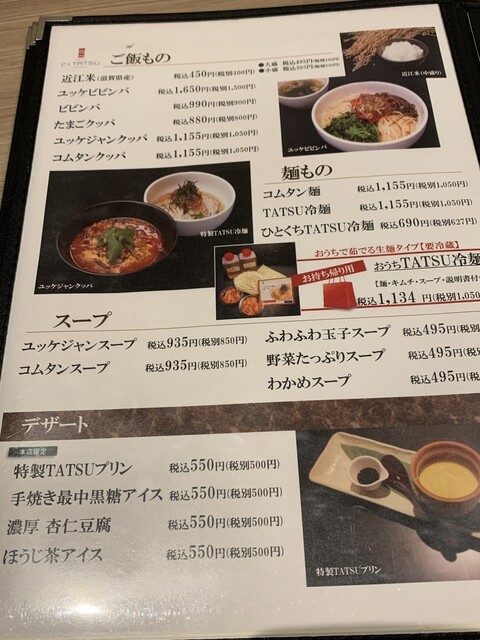 TATSU
ご飯もの
近江米(滋賀県産) 税込450円(税別400円)
●大盛 税込495円
●小盛 税込385円
ユッケビビンバ 税込1,650円(税別1,500円)
ビビンバ 税込990円(税別900円)
たまごクッパ 税込880円(税別800円)
ユッケジャンクッパ 税込1,155円(税別1,050円)
コムタンクッパ 税込1,155円(税別1,050円)
近江米(中盛り)
ユッケビビンバ
特製TATSU冷麺
ユッケジャンクッパ
麺もの
コムタン麺 税込1,155円(税別1,050円)
TATSU冷麺 税込1,155円(税別1,050円)
ひとくちTATSU冷麺 税込690円(税別627円)
おうちで茹でる生麺タイプ【要冷蔵】
お持ち帰り用
おうちTATSU冷麺
【麺・キムチ・スープ・説明書付
税込1,134 円(税別1,050
スープ
ユッケジャンスープ 税込935円(税別850円)
コムタンスープ 税込935円(税別850円)
ふわふわ玉子スープ 税込495円(税
野菜たっぷりスープ 税込495円(税
わかめスープ 税込495円(税
デザート
本店限定
特製TATSUプリン 税込550円(税別500円)
手焼き最中黒糖アイス 税込550円(税別500円)
濃厚 杏仁豆腐 税込550円(税別500円)
ほうじ茶アイス 税込550円(税別500円)
特製TATSUプリン